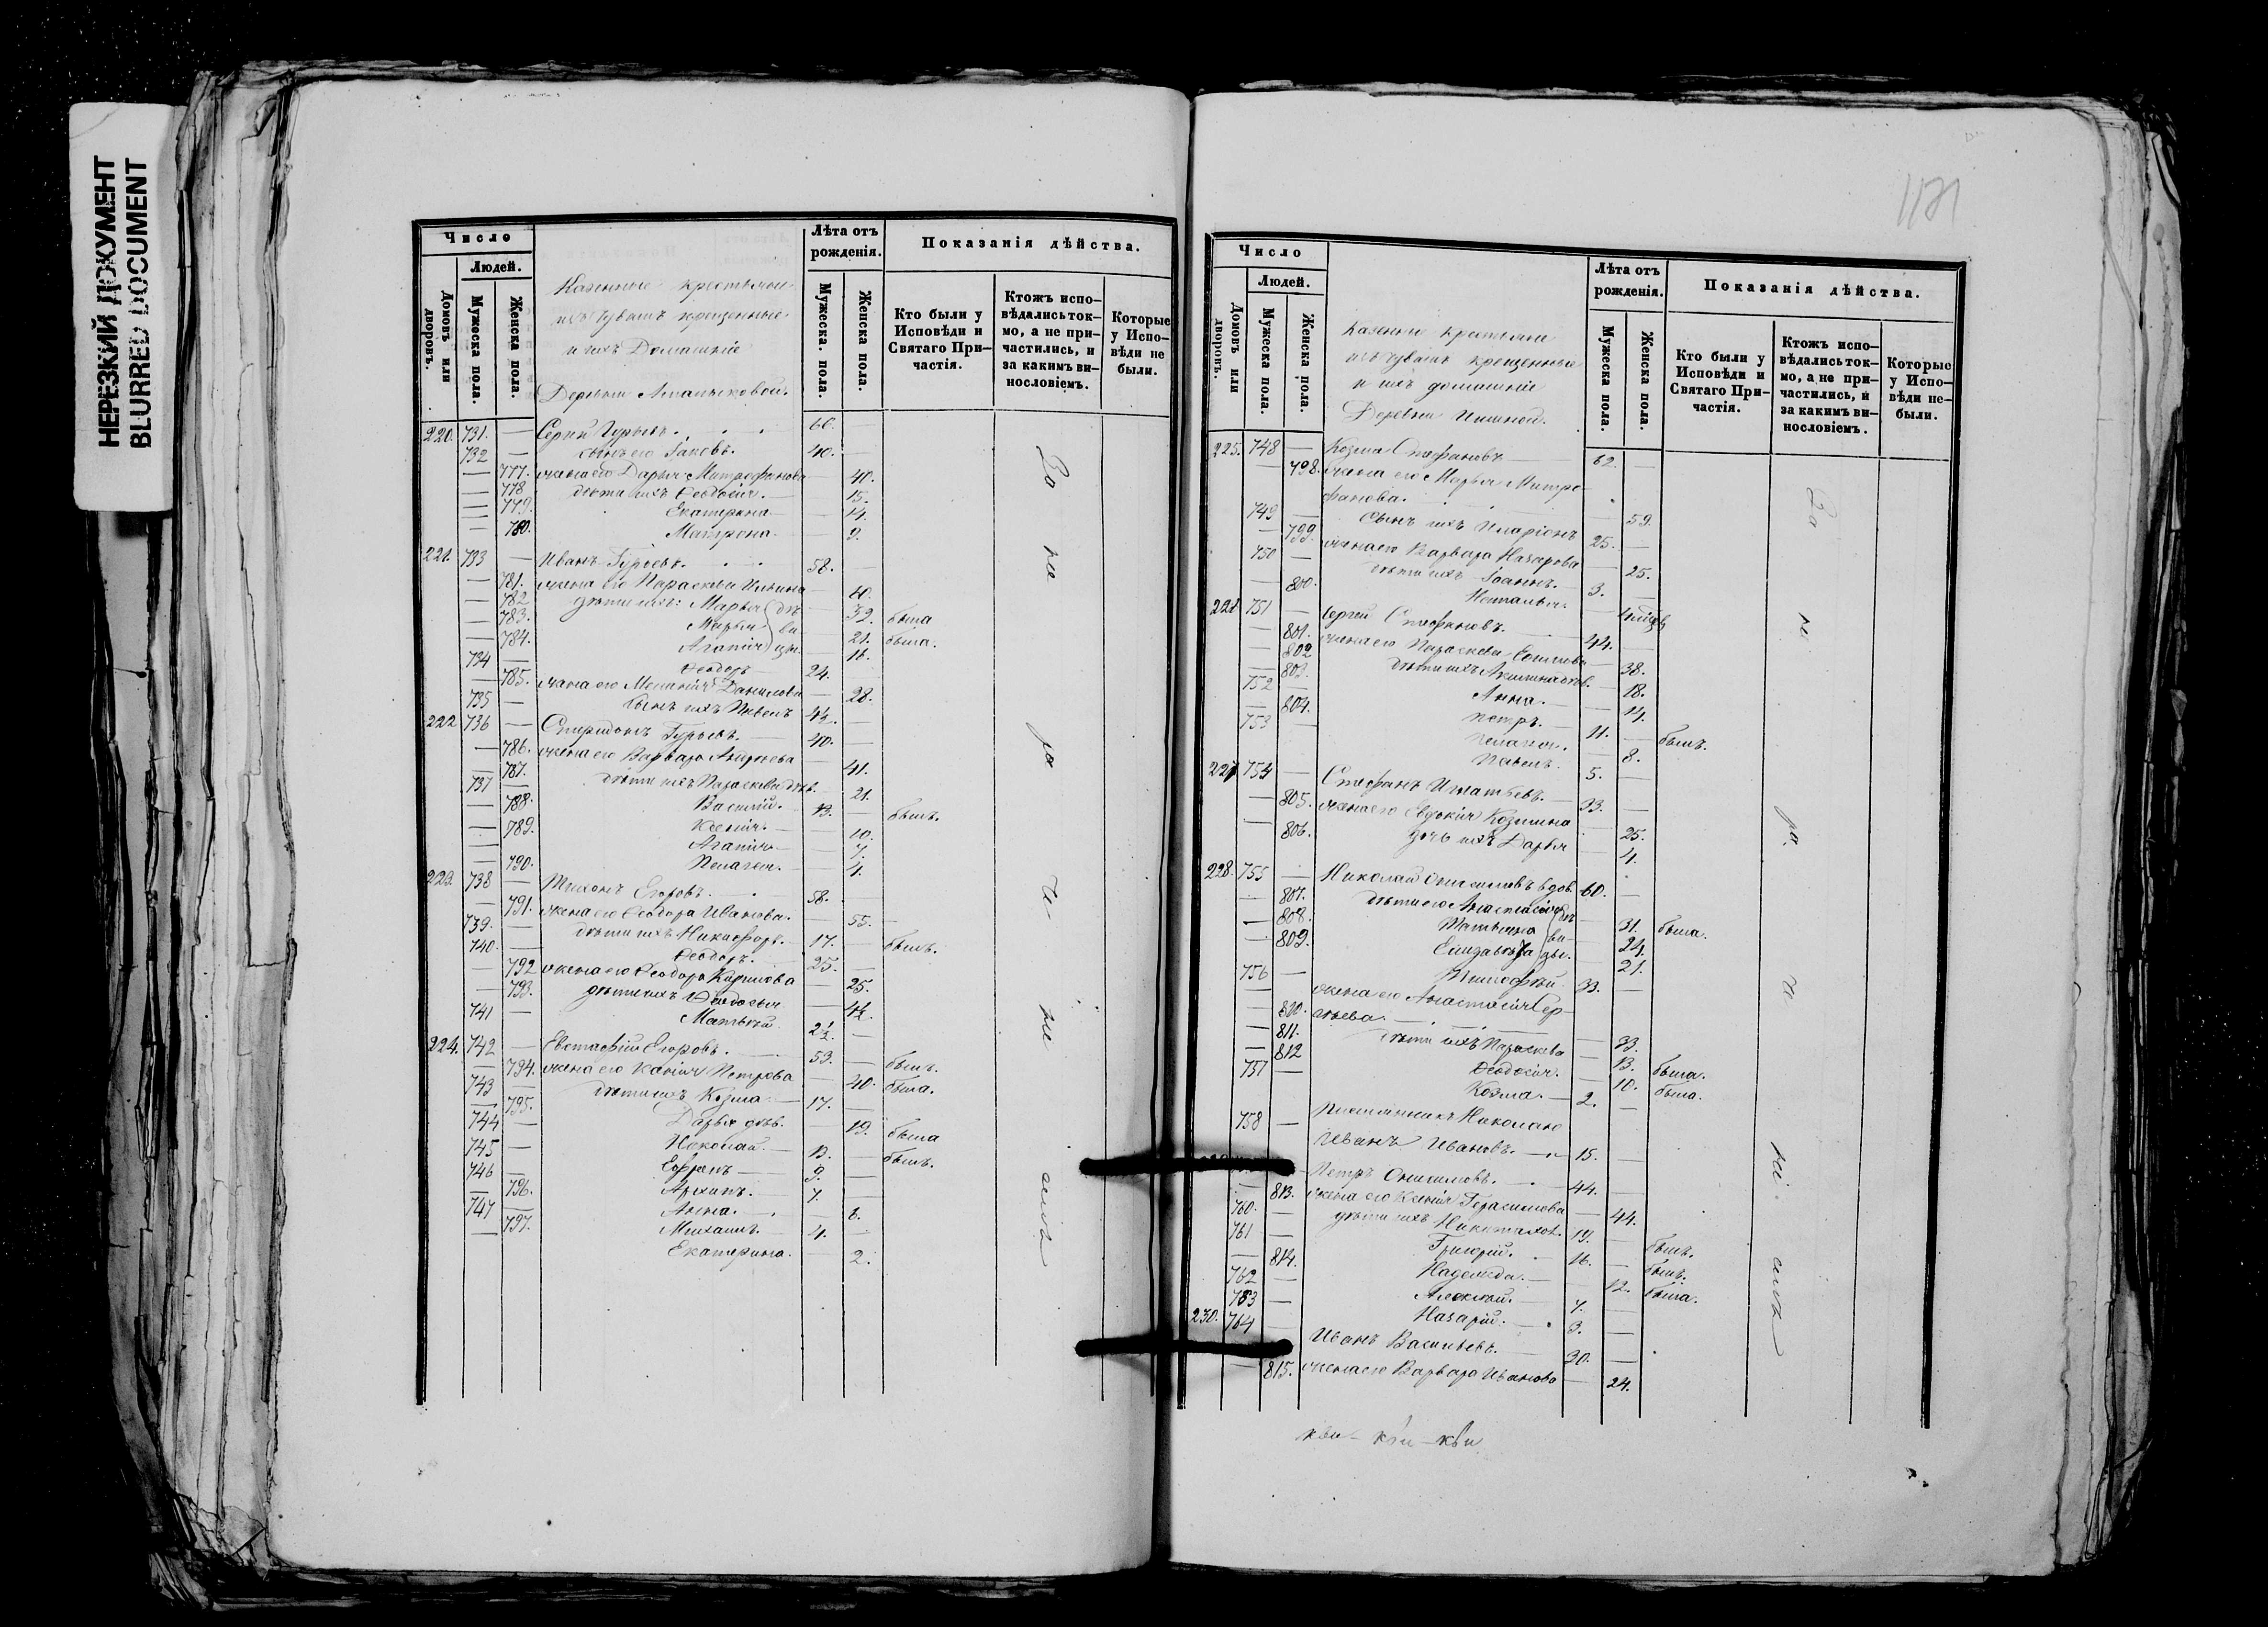 НЕРЕЗКИЙ ДОКУМЕНТ
BLURRED DOCUMENT
Число
Людей.
Домовъ или дворовъ.
Мужеска пола.
Женска пола.
Казенные крестьяне
изъ Чувашъ крещенные
и ихъ Домашніе
Деревни
Лѣта отъ рожденія.
Мужеска. пола.
Женска пола.
Показанія дѣйства.
Кто были у Исповѣди и Святаго Причастія.
Ктожъ исповѣдались токмо, а не причастились, и за какимъ винословіемъ.
Которые у Исповѣди не были.
220. 731. — Сергій Гурьевъ. 60.
732 — сынъ его Іаковъ. 40. —
— 777. жена его Дарья Митрофанова — 40.
— 778 дѣти ихъ Феодосія. — 15.
— 779. Екатерина — 14.
— 780. Матрона. — 9.
221. 733 — Иванъ Гурьевъ. 58. —
— 781. жена его Параскева Ильина — 60.
— 782 дѣти ихъ: Марья дѣ — 32. была
— 783. Марья ви — 21. была.
— 784. Агапія цы. — 16.
734 — Феодоръ 24. —
— 785. жена его Меланія Данилова — 28.
735 — сынъ ихъ Павелъ —
222 736 — Спиридонъ Гурьевъ. — 40. —
— 786. жена его Варвара Андреева — 41.
— 787. дѣти ихъ Параскева дѣв. — 21.
737 — Василій. 13. — былъ.
— 788. Ксенія. — 10.
— 789. Агапія — 7.
— 790. Пелагея. — 4.
223. 738 — Тихонъ Егоровъ. 58. —
— 791. жена его Феодора Иванова. — 55.
739. — дѣти ихъ Никифоръ. 17. — былъ.
740. — Феодоръ. 25. —
— 792 жена его Феодора Кирилова — 25.
— 793. дѣти ихъ Феодосья —
741 — Матвѣй 2½. —
224. 742 — Евстафій Егоровъ. 53. — былъ.
— 794. жена его Ксенія Петрова — 40. была.
743 — дѣти ихъ Козма. — 17. —
— 795. Дарья дѣв. — 19. была
744 — Николай. — 13. — былъ.
745 — Ефремъ — 9. —
746 — Архипъ. — 7. —
— 796. Анна. — 6.
747 — Михаилъ. — 4. —
— 797. Екатерина. — 2.
За не ра де ні емъ
1171
Число
Людей.
Домовъ или дворовъ.
Мужеска пола.
Женска пола.
Казенные крестьяне
изъ Чувашъ крещенные
и ихъ домашніе
Деревни
Лѣта отъ рожденія.
Мужеска пола.
Женска пола.
Показанія дѣйства.
Кто были у Исповѣди и Святаго Причастія.
Ктожъ исповѣдались токмо, а не причастились, и за какимъ винословіемъ.
Которые у Исповѣди небыли.
225. 748 — Козма Стефановъ 62. —
— 798. жена его Марья Митро-
фанова. — 59.
749 — сынъ ихъ Иларіонъ 25. —
— 799. жена его Варвара Назарова — 25.
750 — дѣти ихъ Іоаннъ. 3. —
— 800. Наталья. —
226 751 — Сергей Стефановъ. 44. —
— 801. жена его Параскева — 38.
— 802 дѣти ихъ Акилина дѣв. — 18.
— 803. Анна. — 14.
752 — Петръ. 11. — былъ.
— 804. Пелагея. — 8.
753 — Павелъ. 5. —
227 754 — Стефанъ Игнатьевъ. — 33. —
— 805. жена его Евдокія Козмина — 25.
— 806. дочь ихъ Дарья — 4.
228. 755 — Николай Онисимовъ вдов. 60. —
— 807. дѣти его Анастасія дѣ — 31. была.
— 808. Татьяна ви — 24.
— 809. Елизавета цы. — 21.
756 — Тимофѣй 33. —
— 810. жена его Анастасія Сер-
гѣева. — 33.
— 811. дѣти ихъ Параскева — 13. была.
— 812 Феодосія. — 10. была.
757 — Козма. — 2. —
Николаю
758 — Иванъ Ивановъ. — 15. —
Петръ Онисимовъ. 44. —
— 813. жена его Ксенія Герасимова — 44.
760. — дѣти ихъ 19. — былъ.
761 — Григорій. 16. — былъ.
— 814. Надежда. — 12. была.
762 — Алексѣй. — 7. —
763 — Назарій. — 3. —
230. 764 — Иванъ Васильевъ. 30. —
— 815. жена его Варвара Иванова — 24.
За не ра де ні емъ